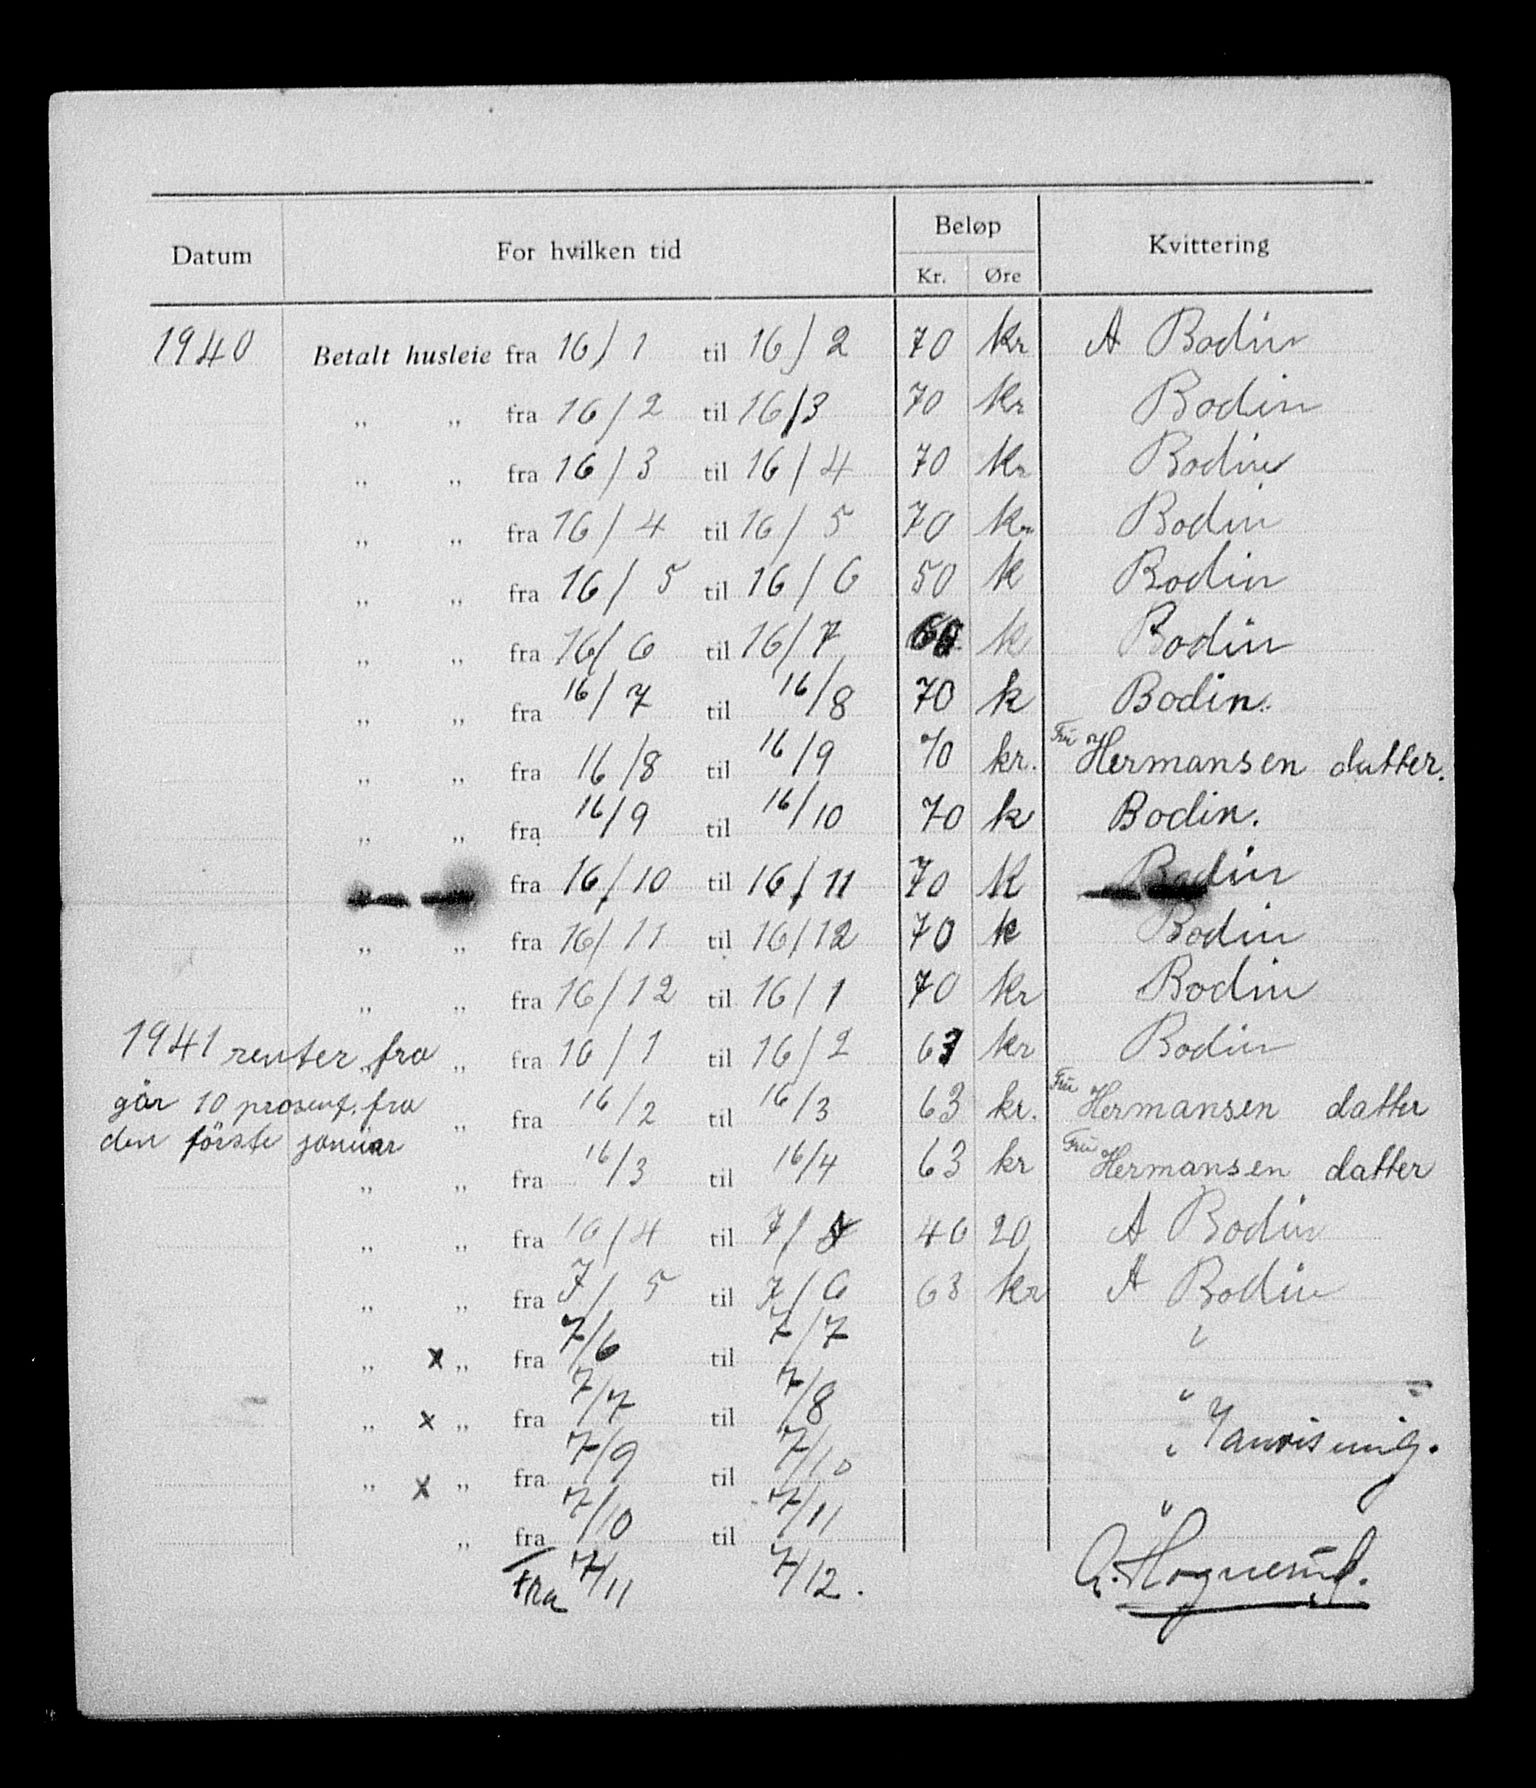 Datum For hvilken tid Beløp Kvittering
Kr. Øre
1940 Betalt husleie fra 16/1 til 16/2 70 kr A Bodin
„ „ fra 16/2 til 16/3 70 kr Bodin
„ „ fra 16/3 til 16/4 70 kr Bodin
„ „ fra 16/4 til 16/5 70 kr Bodin
„ „ fra 16/5 til 16/6 50 k Bodin
„ „ fra 16/6 til 16/7 k Bodin
„ „ fra 16/7 til 16/8 70 k Bodin.
„ „ fra 16/8 til 16/9 70 kr. Fru Hermansen datter.
„ „ fra 16/9 til 16/10 70 k Bodin.
fra 16/10 til 16/11 70 K Bodin
„ „ fra 16/11 til 16/12 70 k Bodin
„ „ fra 16/12 til 16/1 70 kr Bodin
1941 renter fra „ „ fra 16/1 til 16/2 63 kr Bodin
går 10 prosent. fra „ fra 16/2 til 16/3 63 kr. Fru Hermansen datter
den förste januar
„ „ fra 16/3 til 16/4 63 kr Fru Hermansen datter
„ „ fra 16/4 til 7/ 46 20 A Bodin
„ „ fra 7/5 til 7/6 63 kr A Bodin
„ x „ fra 7/6 til 7/7
„ x „ fra 7/7 til 7/8 „
„ x „ fra 7/9 til 7/10 „
„ fra 7/10 til 7/11 „
Fra 7/11 7/12.